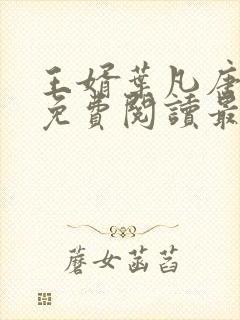 王婿葉凡唐
免費閱讀最
蘑女菡萏